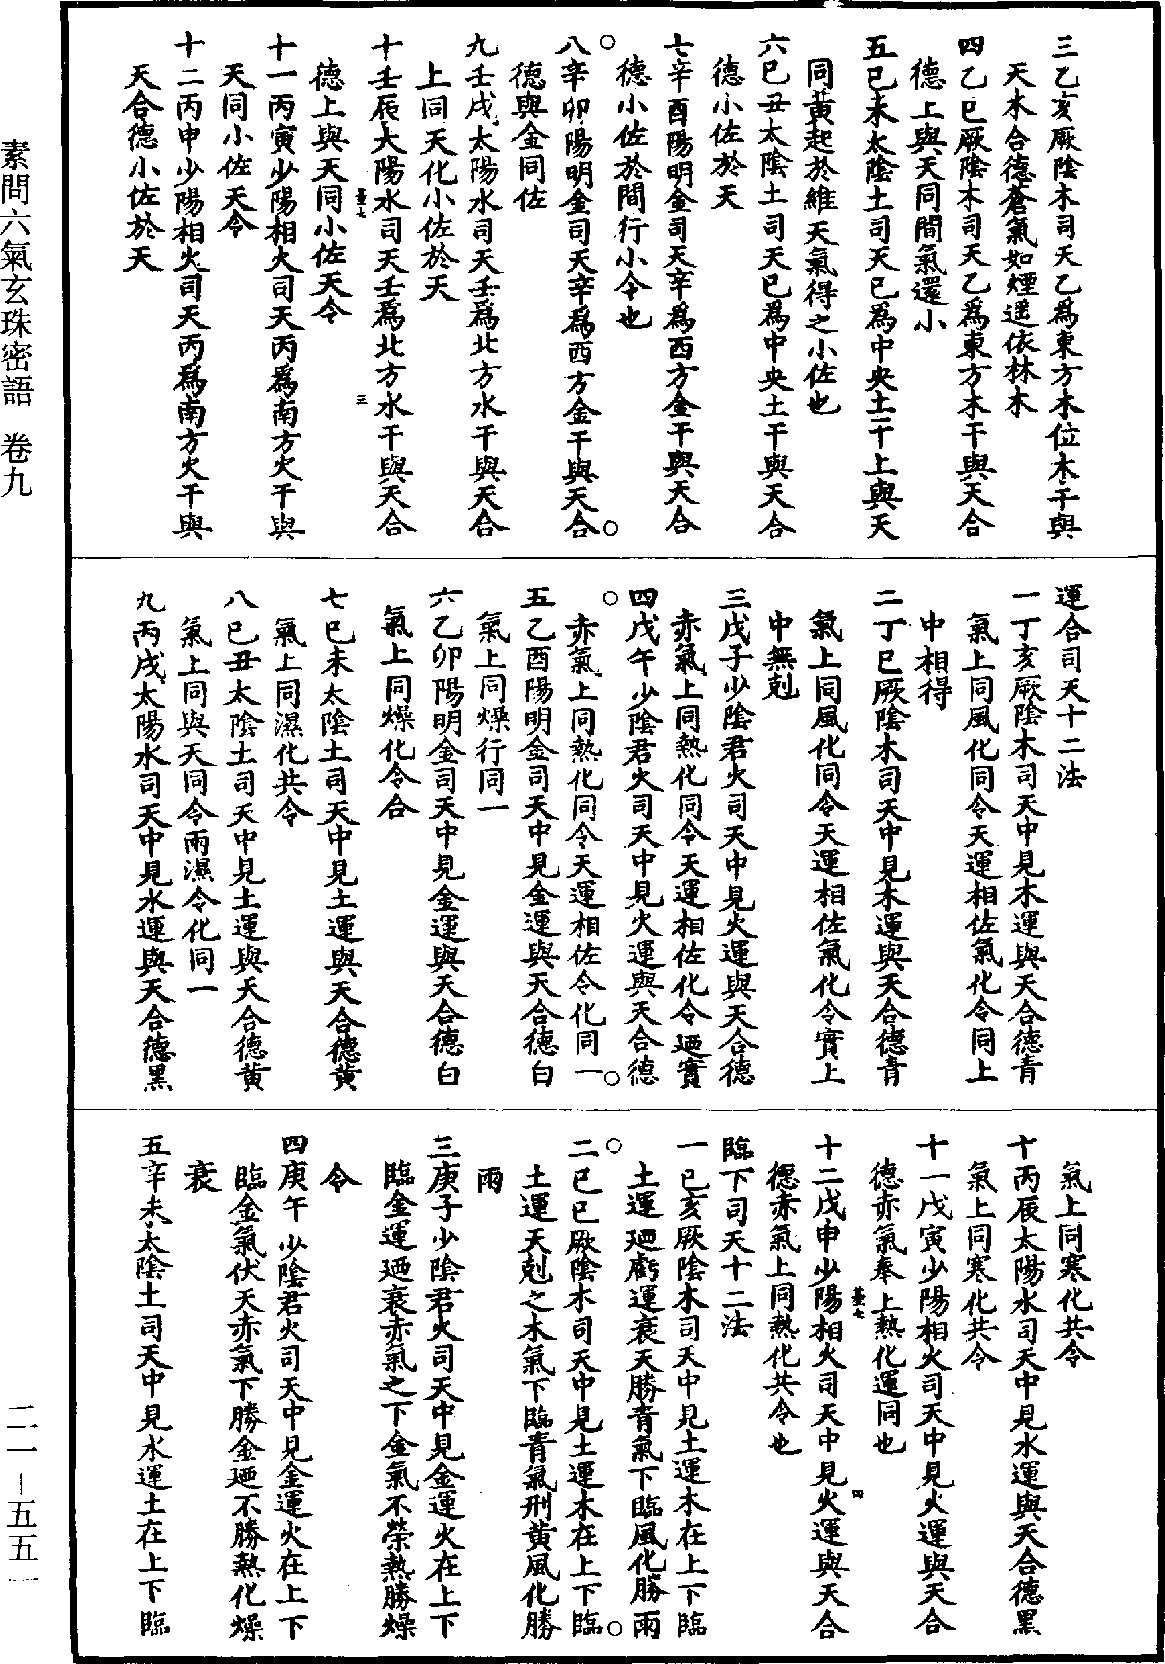 三乙亥厥陰木司天乙爲東方木位木干與
天木合德蒼氣如煙遥依林木
四乙巳厥陰木司天乙爲東方木干與天合
德上與天同間氣還小
五已未太陰土司天已爲中央土干上與天
同黄起於維天氣得之小佐也
六已丑太陰土司天已爲中央土干與天合
德小佐於天
七辛酉陽明金司天辛爲西方金干與天合
德小佐於間行小令也
八辛卯陽明金司天辛爲西方金干與天合
德與金同佐
九壬戌太陽水司天壬爲北方水干與天合
上同天化小佐於天
十壬辰太陽水司天壬爲北方水干與天合
德上與天同小佐天令
十一丙寅少陽相火司天丙爲南方火干與
天同小佐天令
十二丙申少陽相火司天丙爲南方火干與
天合德小佐於天
運合司天十二法
一丁亥厥陰木司天中見木運與天合德青
氣上同風化同令天運相佐氣化令同上
中相得
二丁巳厥陰木司天中見木運與天合德青
氣上同風化同令天運相佐氣化令實上
中無剋
三戊子少陰君火司天中見火運與天合德
赤氣上同熱化同令天運相佐化令廼實
四戊午少陰君火司天中見火運與天合德
赤氣上同熱化同令天運相佐令化同一
五乙酉陽明金司天中見金運與天合德白
氣上同燥行同一
六乙卯陽明金司天中見金運與天合德白
氣上同燥化令合
七已未太陰土司天中見土運與天合德黄
氣上同濕化共令
八已丑太陰土司天中見土運與天合德黄
氣上同與天同令雨濕令化同一
九丙戌太陽水司天中見水運與天合德黑
氣上同寒化共令
十丙辰太陽水司天中見水運與天合德黑
氣上同寒化共令
十一戊寅少陽相火司天中見火運與天合
德赤氣奉上熱化運同也
十二戊申少陽相火司天中見火運與天合
德赤氣上同熱化共令也
臨下司天十二法
一已亥厥陰木司天中見土運木在上下臨
土運廼虧運衰天勝青氣下臨風化勝雨
二已巳厥陰木司天中見土運木在上下臨
土運天剋之木氣下臨青氣刑黄風化勝
雨
三庚子少陰君火司天中見金運火在上下
臨金運廼衰赤氣之下金氣不榮熱勝燥
令
四庚午少陰君火司天中見金運火在上下
臨金氣伏天赤氣下勝金廼不勝熱化燥
衰
五辛未太陰土司天中見水運土在上下臨
素問六氣玄珠密語　卷九
二一－五五一